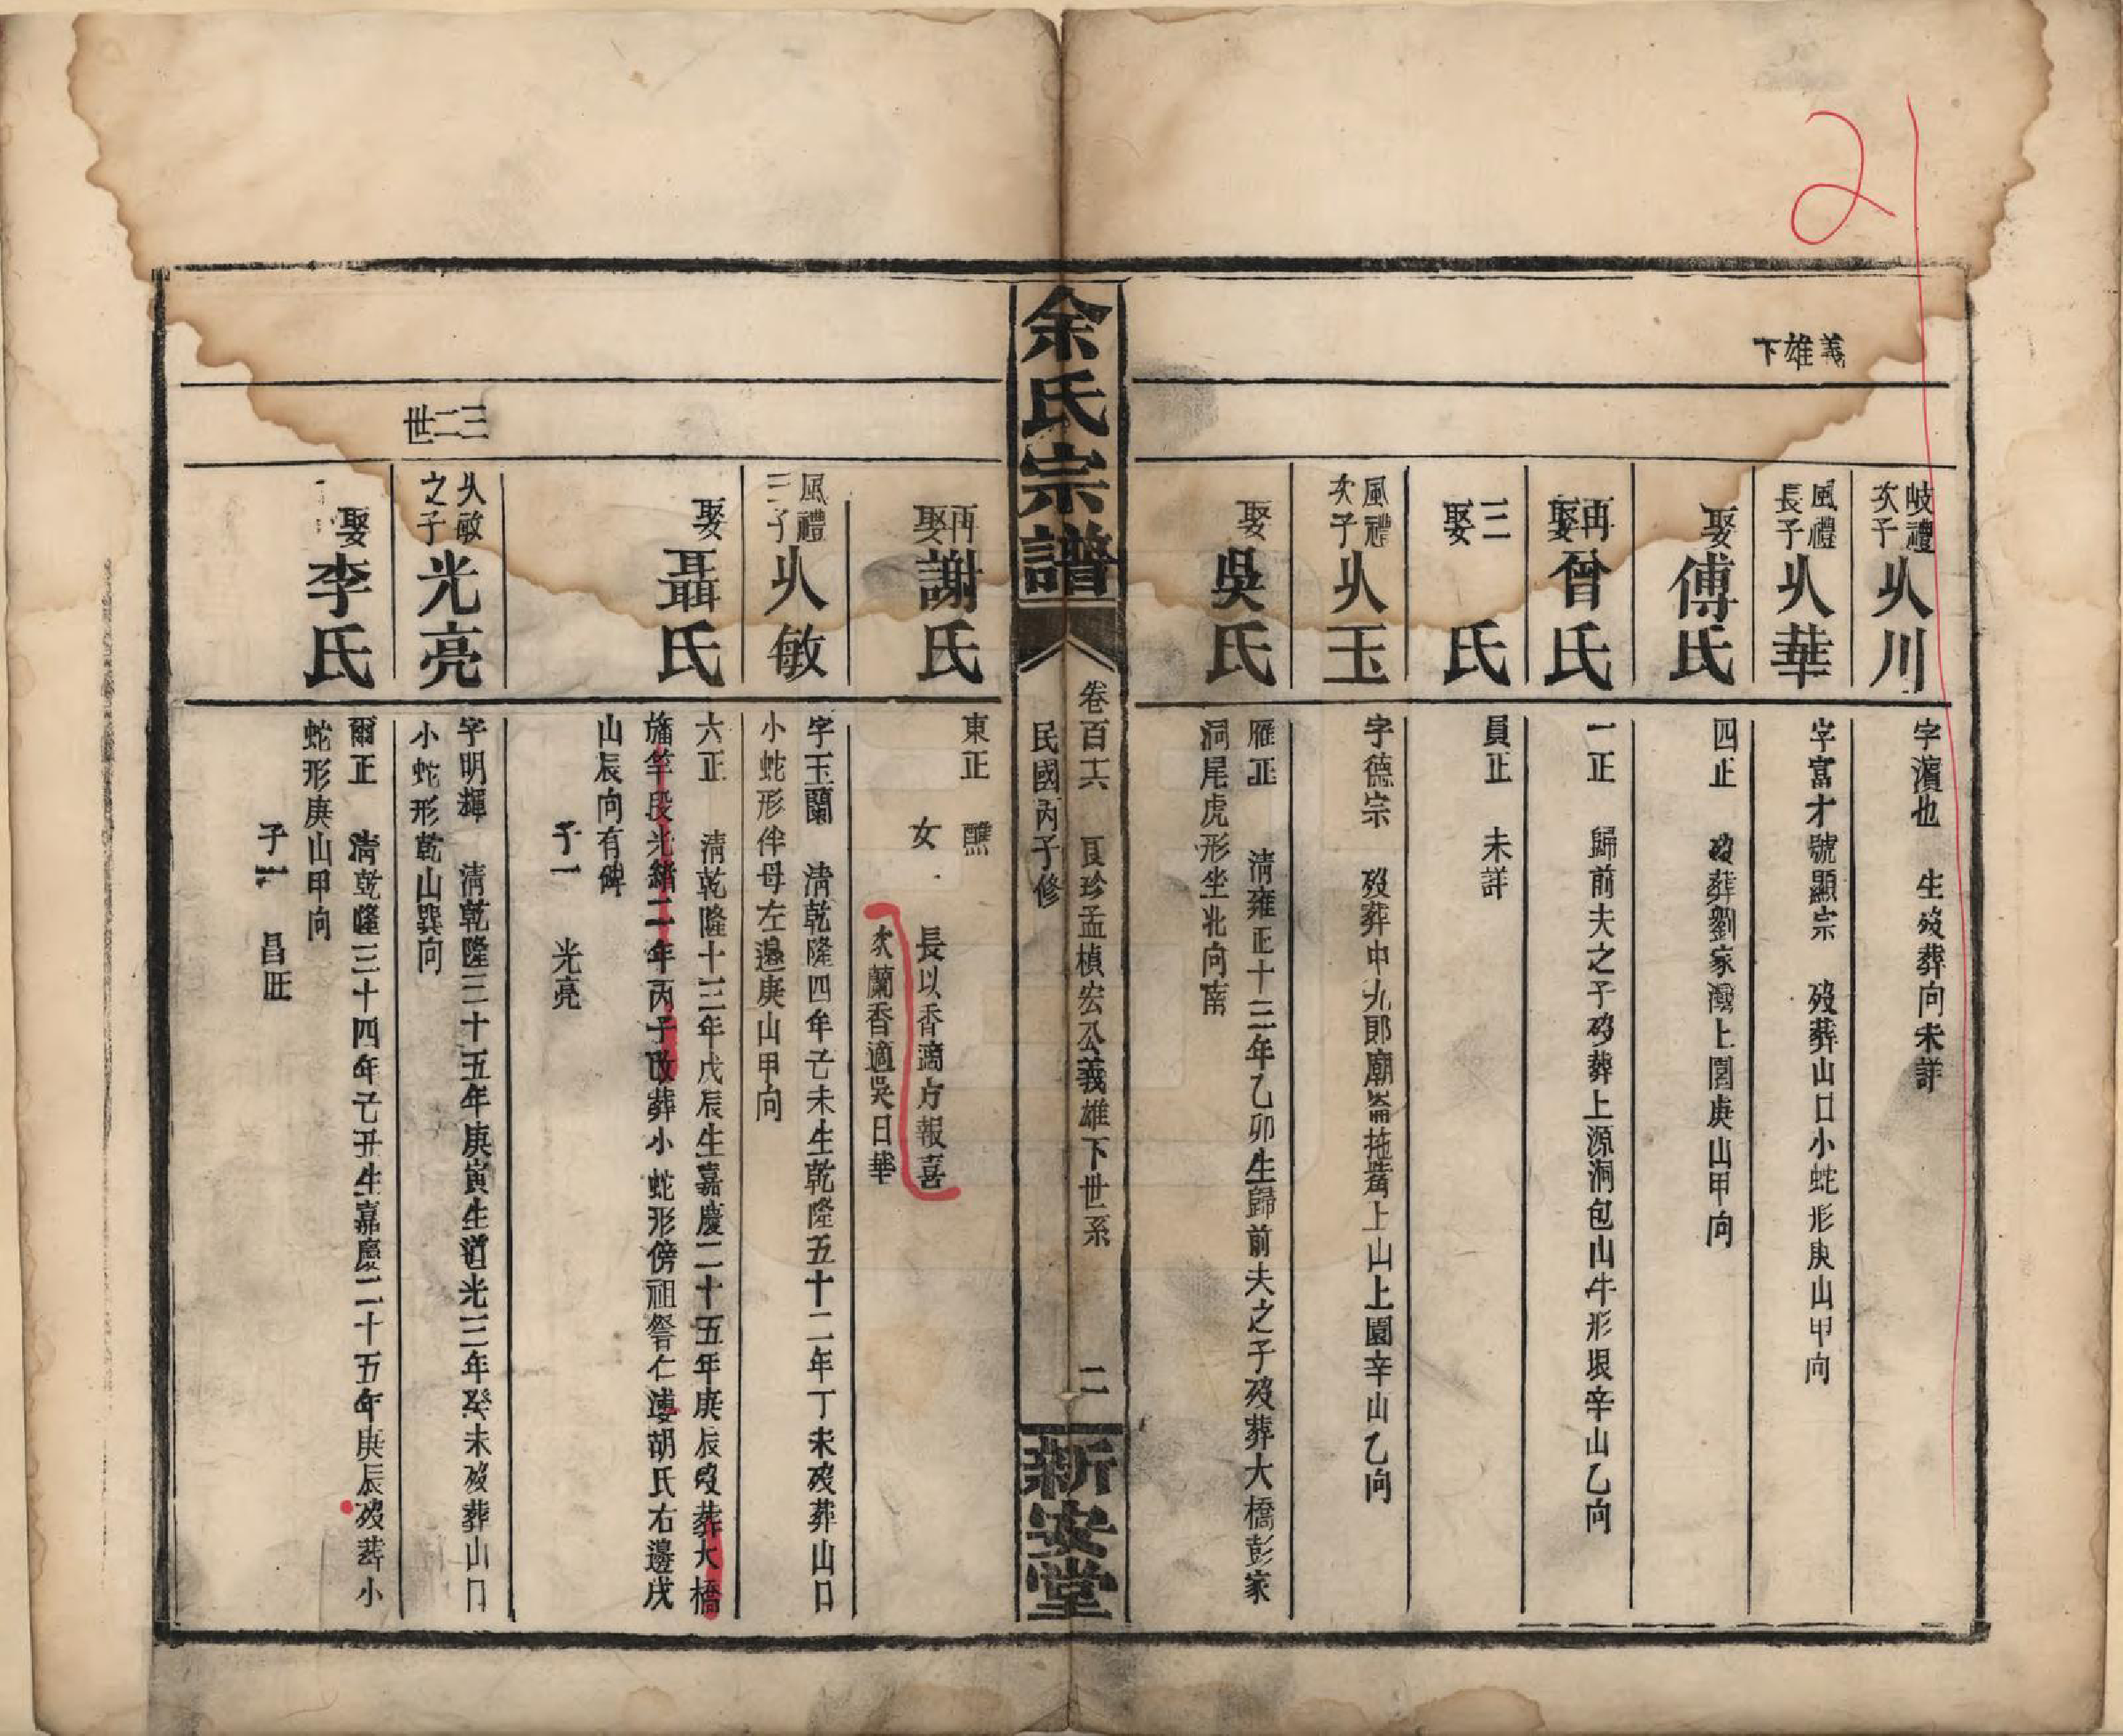 21
義雄下
岐禮次子 㸚川
字濵也 生歿葬向未詳
風禮長子 㸚華
字富才號顯宗 歿葬山口小蛇形庚山甲向
娶傅氏
四正 歿葬劉家灣上園庚山甲向
再娶曾氏
一正 歸前夫之子歿葬上源洞包山牛形艮辛山乙向
三娶 氏
員正 未詳
風禮次子 㸚玉
字德宗 歿葬中九郎廟崙拖嘴上山上園辛山乙向
娶吳氏
雁正 清雍正十三年乙卯生歸前夫之子歿葬大橋彭家
洞尾虎形坐北向南
余氏宗譜
卷百六 良珍孟槙宏公義雄下世系 二
民國丙子修
新安堂
再娶謝氏
東正 醮
女
長以香適方報喜
次蘭香適吳日華
風禮三子 㸚敏
字玉蘭 清乾隆四年己未生乾隆五十二年丁未歿葬山口
小蛇形伴母左邊庚山甲向
娶聶氏
六正 清乾隆十三年戊辰生嘉慶二十五年庚辰歿葬大橋
旛竿段光緒二年丙子改葬小蛇形傍祖嚳仁溥胡氏右邊戌
山辰向有碑
子一 光亮
三二世
㸚敏之子 光亮
字明輝 清乾隆三十五年庚寅生道光三年癸未歿葬山口
小蛇形乾山巽向
娶李氏
爾正 清乾隆三十四年己丑生嘉慶二十五年庚辰歿葬小
蛇形庚山甲向
子一 昌旺